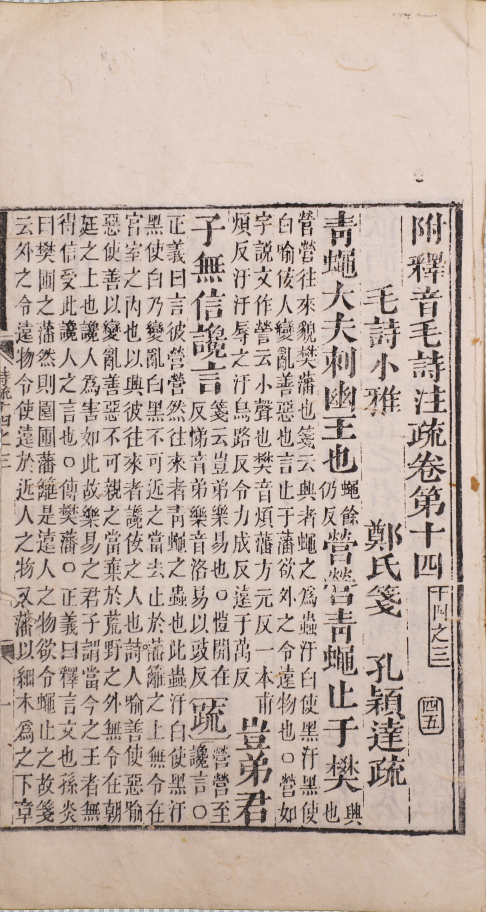 附釋音毛詩注疏卷第十四 十四之三 四五
毛詩小雅 鄭氏箋 孔穎達疏
青蠅大夫刺幽王也 蠅餘仍反 營營青蠅止于樊 興也
營營往來貌樊藩也箋云興者蠅之為蟲汙白使黑汙黑使
白喻佞人變亂善惡也言止于藩欲外之令遠物也○營如
字說文作營云小聲也樊音煩藩方元反一本甫
煩反汙汙辱之汙烏路反令力成反遠于萬反 豈弟君
子無信讒言 箋云豈弟樂易也○愷開在反悌音弟樂音洛易以豉反 疏 營營至讒言○
正義曰言彼營營然往來者青蠅之蟲也此蟲汙白使黑汙
黑使白乃變亂白黑不可近之當去止於藩籬之上無令在
宮室之內也以興彼往來者讒佞之人也詩人喻善使惡喻
惡使善以變亂善惡不可親之當棄於荒野之外無令在朝
廷之上也讒人為害如此故樂易之君子謂當今之王者無
得信受此讒人之言也○傳樊藩○正義曰釋言文也孫炎
曰樊圃之藩然則園圃藩籬是遠人之物欲令蠅止之故箋
云外之令遠物令使遠於近人之物又藩以細木為之下章
詩疏十四之三 一